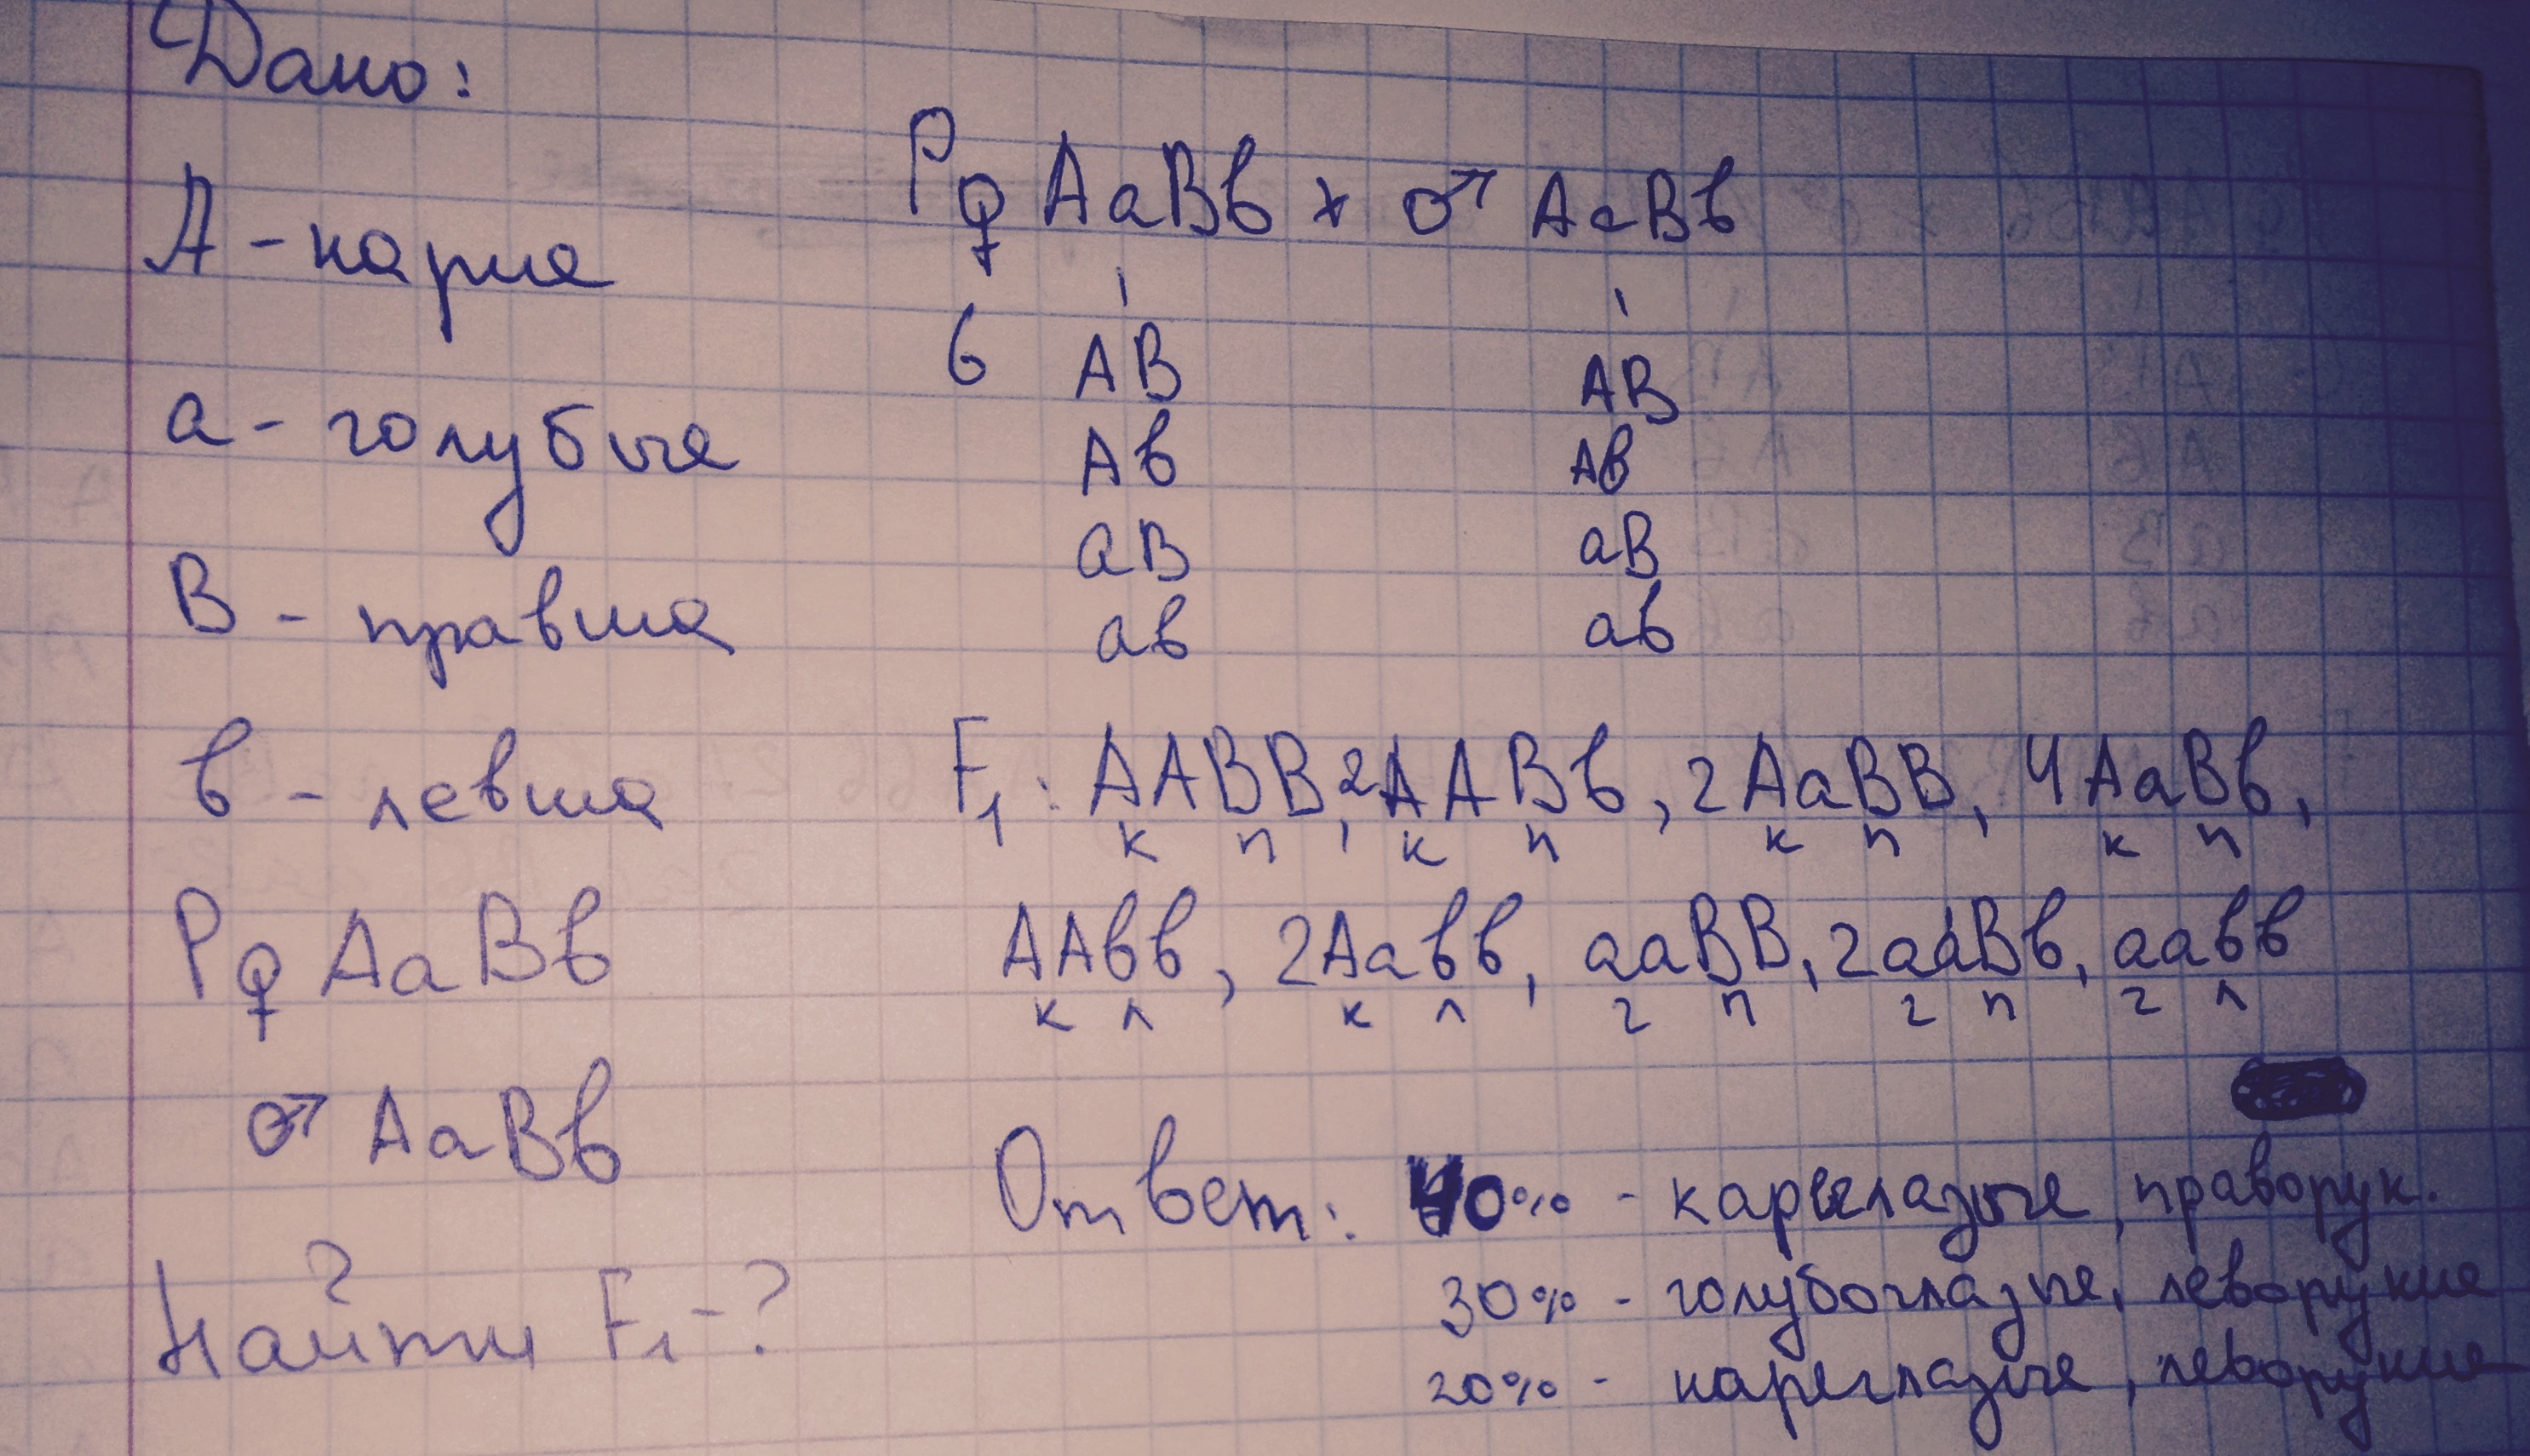 Дано:
А - карие
а - голубые
В - правша
в - левша
Р♀ АаВв
♂ АаВв
Найти F₁ - ?
Р♀ АаВв х ♂ АаВв
G АВ АВ
Ав Ав
аВ аВ
ав ав
F₁: ААВВ, 2ААВв, 2АаВВ, 4АаВв,
к п к п к п к п
ААвв, 2Аавв, ааВВ, 2ааВв, аавв
к л к л г п г п г л
Ответ: 40% - кареглазые, праворук.
30% - голубоглазые, леворукие
20% - кареглазые, леворукие